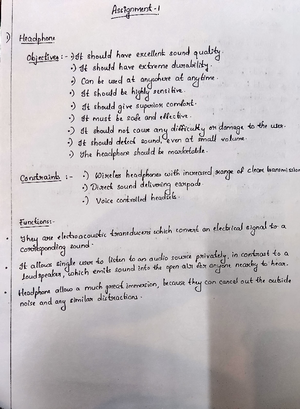 Assignment-1
Headphone
Objectives :- •) It should have excellent sound quality.
•) It should have extreme durability.
•) Can be used at anywhere at anytime.
•) It should be highly sensitive.
•) It should give superior comfort.
•) It must be safe and effective.
•) It should not cause any difficulty or damage to the user.
•) It should detect sound, even at small volume.
•) The headphone should be marketable.
Constraints :- •) Wireless headphones with increased range of clean transmission
•) Direct sound delivering earpads
•) Voice controlled headsets.
Functions:-
• They are electroacoustic transducers which convert an electrical signal to a
corresponding sound.
• It allows single user to listen to an audio source privately, in contrast to a
loudspeaker, which emits sound into the open air for anyone nearby to hear.
• Headphone allow a much great immersion, because they can cancel out the outside
noise and any similar distractions.